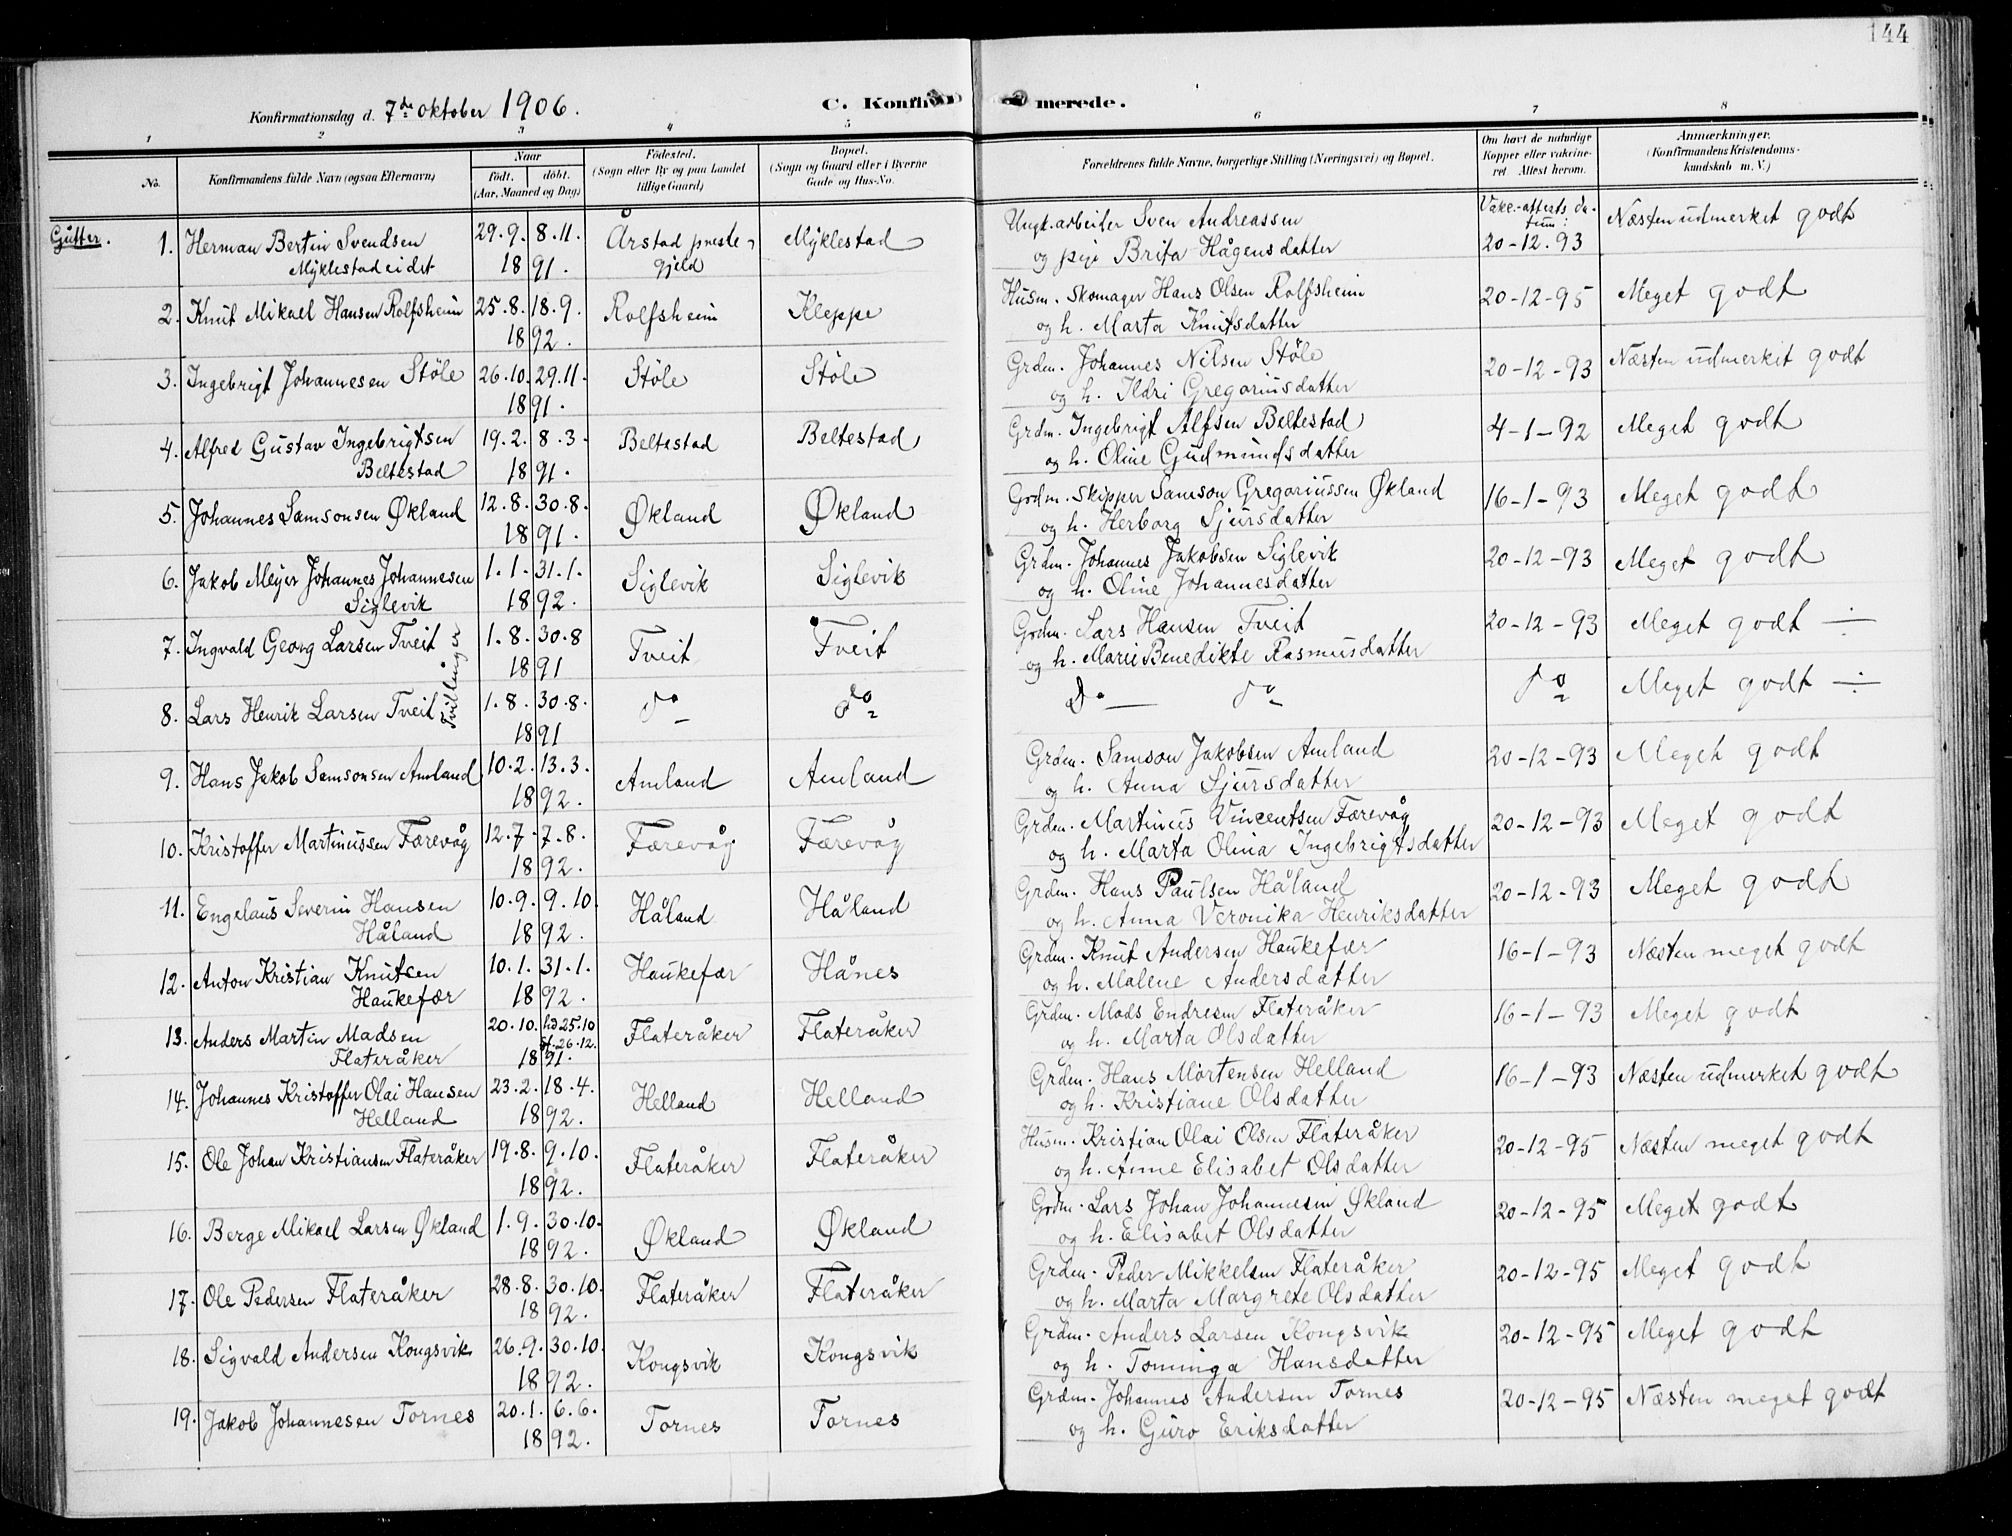 144
Konfirmationsdag d. 7de oktober 1906.
C. Konfir merede.
1 2 3 4 5 6 7 8
No. Konfirmandens fulde Navn (ogsaa Efternavn) Naar født. døbt. (Aar, Maaned og Dag) Fødested. (Sogn eller By og paa Landet tillige Gaard) Bopæl. (Sogn og Gaard eller i Byerne Gade og Hus-No. Forældrenes fulde Navne, borgerlige Stilling (Næringsvei) og Bopæl. Om havt de naturlige Kopper eller vakcineret. Attest herom. Anmærkninger. (Konfirmandens Kristendomskundskab m. V.)
Gutter. 1. Herman Bertin Svendsen 29.9. 8.11. Årstad preste- Myklestad Ungk. arbeider Sven Andreassen Vakc.-attests da-tum: Næsten udmerket godt
Myklestadeidet 18 91. gjeld og pige Brita Hågensdatter 20-12.93
2. Knut Mikael Hansen Rolfsheim 25.8. 18.9. Rolfsheim Kleppe Husm. Skomager Hans Olsen Rolfsheim 20-12-95 Meget godt
18 92. og h. Marta Knutsdatter
3. Ingebrigt Johannesen Støle 26.10. 29.11. Støle Støle Grdm. Johannes Nilsen Støle 20-12-93 Næsten udmerket godt
18 91. og h. Ildri Gregoriusdatter
4. Alfred Gustav Ingebrigtsen 19.2. 8.3. Beltestad Beltestad Grdm. Ingebrigt Alfsen Beltestad 4-1-92 Meget godt
Beltestad 18 91. og h. Oline Gudmundsdatter
5. Johannes Samsonsen Økland 12.8. 30.8. Økland Økland Grdm. Skipper Samson Gregoriussen Økland 16-1-93 Meget godt
18 91. og h. Herborg Sjursdatter
6. Jakob Meyer Johannes Johannesen 1.1. 31.1. Siglevik Siglevik Grdm. Johannes Jakobsen Siglevik 20-12-93 Meget godt
Siglevik 18 92. og h. Oline Johannesdatter
7. Ingvald Georg Larsen Tveit 1.8. 30.8 Tveit Tveit Grdm. Lars Hansen Tveit 20-12-93 Meget godt ÷
Tvillinger 18 91 og h. Marie Benedikte Rasmusdatter
8. Lars Henrik Larsen Tveit 1.8. 30.8. do do Do do do Meget godt ÷
18 91
9. Hans Jakob Samsonsen Amland 10.2. 13.3. Amland Amland Grdm. Samson Jakobsen Amland 20-12-93 Meget godt
18 92. og h. Anna Sjursdatter
10. Kristoffer Martinussen Færevåg 12.7. 7.8. Færevåg Færevåg Grdm. Martinus Vincentsen Færevåg 20-12-93 Meget godt
18 92. og h. Marta Olina Ingebrigtsdatter
11. Engelaus Severin Hansen 10.9. 9.10. Håland Håland Grdm. Hans Paulsen Håland 20-12-93 Meget godt
Håland 18 92. og h. Anna Veronika Henriksdatter
12. Anton Kristian Knutsen 10.1. 31.1. Haukefær Hånes Grdm. Knut Andersen Haukefær 16-1-93 Næsten meget godt
Haukefær 18 92. og h. Malene Andersdatter
13. Anders Martin Madsen 20.10. hd 25.10 st. 26.12. Flateråker Flateråker Grdm. Mads Endresen Flateråker 16-1-93 Meget godt
Flateråker 18 91. og h. Marta Olsdatter
14. Johannes Kristoffer Olai Hansen 23.2. 18.4. Helland Helland Grdm. Hans Mortensen Helland 16-1-93 Næsten udmerket godt
Helland 18 92. og h. Kristiane Olsdatter
15. Ole Johan Kristiansen Flateråker 19.8. 9.10. Flateråker Flateråker Husm. Kristian Olai Olsen Flateråker 20-12-95 Næsten meget godt
18 92. og h. Anne Elisabet Olsdatter
16. Berge Mikael Larsen Økland 1.9. 30.10. Økland Økland Grdm. Lars Johan Johannesen Økland 20-12-95 Meget godt
18 92. og h. Elisabet Olsdatter
17. Ole Pedersen Flateråker 28.8. 30.10. Flateråker Flateråker Grdm. Peder Mikkelsen Flateråker 20-12-95 Meget godt
18 92. og h. Marta Margrete Olsdatter
18. Sigvald Andersen Kongsvik 26.9. 30.10. Kongsvik Kongsvik Grdm. Anders Larsen Kongsvik 20-12-95 Meget godt
18 92. og h. Tominga Hansdatter
19. Jakob Johannesen Tornes 20.1. 6.6. Tornes Tornes Grdm. Johannes Andersen Tornes 20-12-95 Næsten meget godt
18 92. og h. Guro Eriksdatter